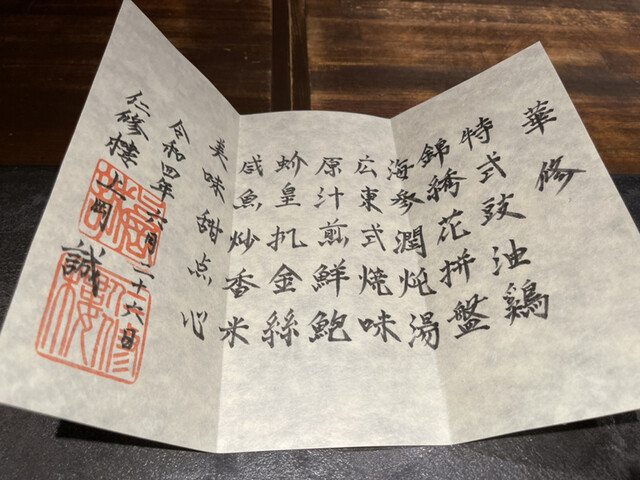 華修
特式豉油鷄
錦綉花拼盤
海参潤炖湯
広東式焼味
原汁煎鮮鮑
蚧皇扒金絲
咸魚炒香米
美味甜点心
令和四年六月二十六日
仁修樓 上岡 誠